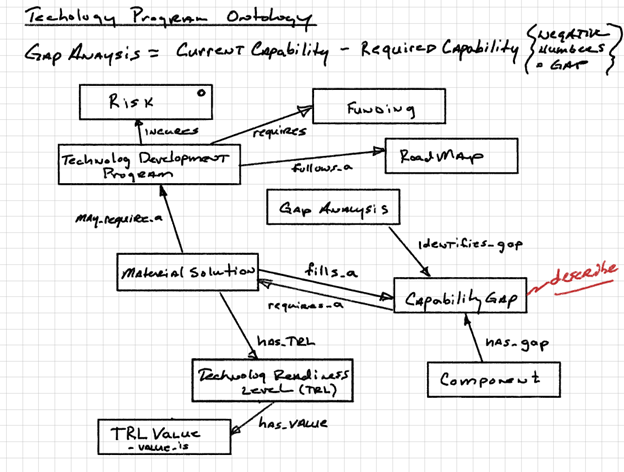 Techology Program Ontology
Gap Anaysis = Current Capability - Required Capability {Negative
numbers
= GAP}
Risk
Funding
incures
requires
Technolog Development
Program
follows_a
RoadMap
Gap Analysis
may_require_a
identifies_gap
Material Solution
fills_a
describe
requires_a
Capability Gap
has_TRL
has_gap
Technolog Readiness
Level (TRL)
Component
has_value
TRL Value
- value_is